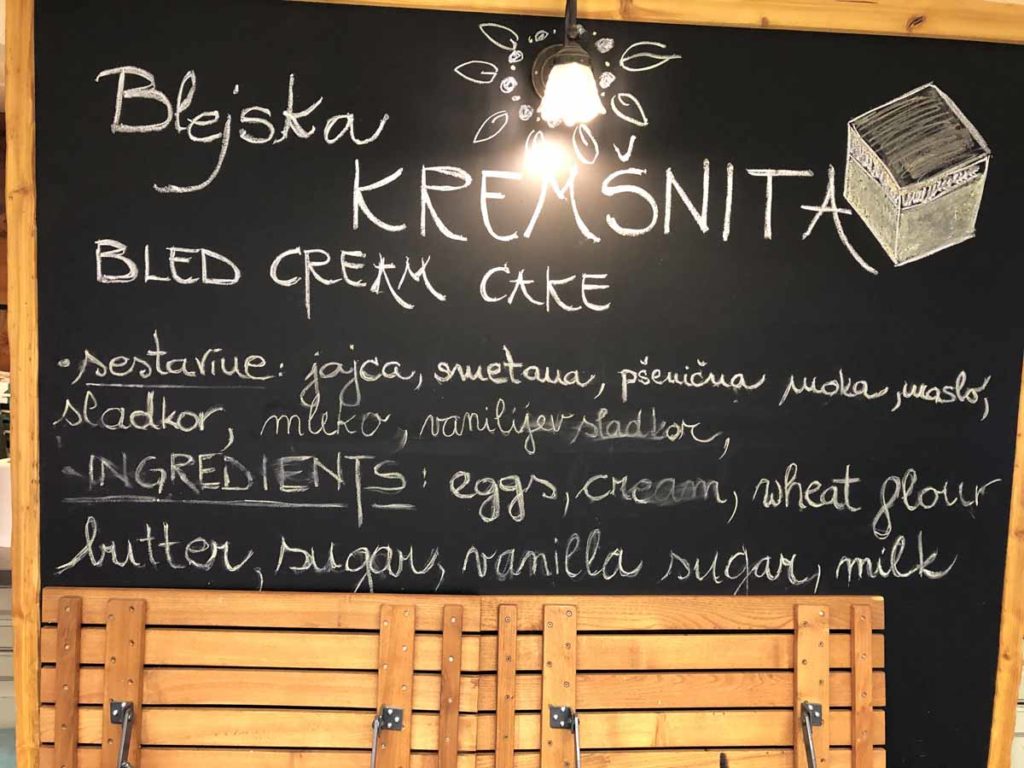 Blejska
KREMŠNITA
BLED CREAM CAKE
• sestavine: jajca, smetana, pšenična moka, maslo,
sladkor, mleko, vanilijev sladkor,
- INGREDIENTS: eggs, cream, wheat flour
butter, sugar, vanilla sugar, milk